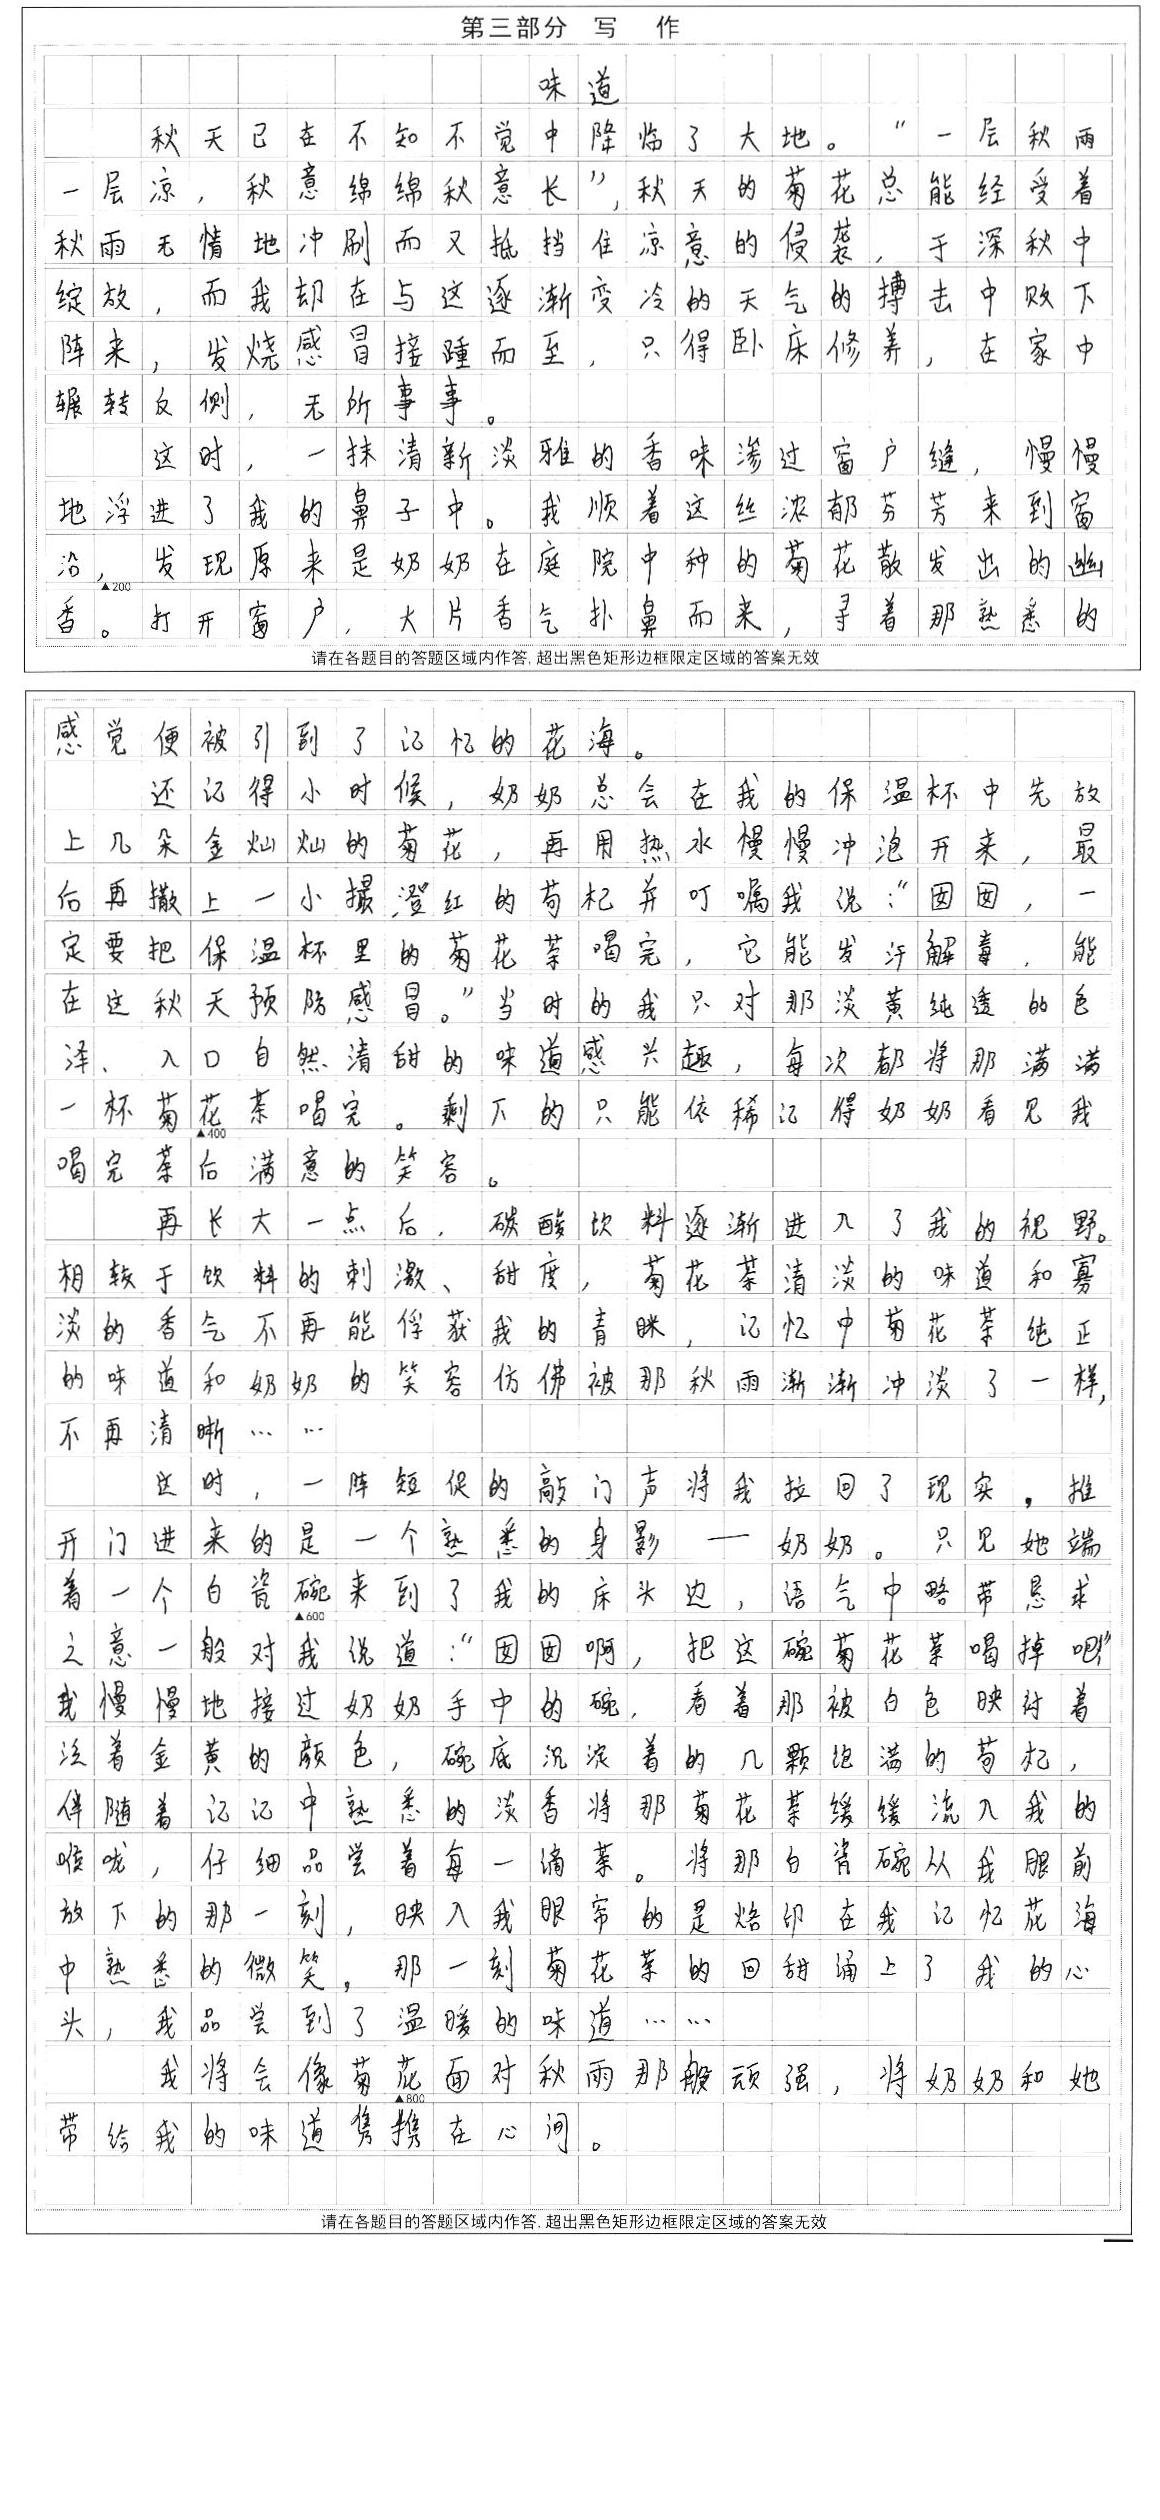 第三部分 写 作
味道
秋天已在不知不觉中降临了大地。“一层秋雨
一层凉，秋意绵绵秋意长”，秋天的菊花总能经受着
秋雨无情地冲刷而又抵挡住凉意的侵袭，于深秋中
绽放，而我却在与这逐渐变冷的天气的搏击中败下
阵来，发烧感冒接踵而至，只得卧床修养，在家中
辗转反侧，无所事事。
这时，一抹清新淡雅的香味渗过窗户缝，慢慢
地浮进了我的鼻子中。我顺着这丝浓郁芬芳来到窗
沿，发现原来是奶奶在庭院中种的菊花散发出的幽
▲200
香。打开窗户，大片香气扑鼻而来，寻着那熟悉的
请在各题目的答题区域内作答，超出黑色矩形边框限定区域的答案无效
感觉便被引到了记忆的花海。
还记得小时候，奶奶总会在我的保温杯中先放
上几朵金灿灿的菊花，再用热水慢慢冲泡开来，最
后再撒上一小撮澄红的苟杞并叮嘱我说：“囡囡，一
定要把保温杯里的菊花茶喝完，它能发汗解毒，能
在这秋天预防感冒。”当时的我只对那淡黄纯透的色
泽、入口自然清甜的味道感兴趣，每次都将那满满
一杯菊花茶喝完。剩下的只能依稀记得奶奶看见我
▲400
喝完茶后满意的笑容。
再长大一点后，碳酸饮料逐渐进入了我的视野。
相较于饮料的刺激、甜度，菊花茶清淡的味道和寡
淡的香气不再能俘获我的青眯，记忆中菊花茶纯正
的味道和奶奶的笑容仿佛被那秋雨渐渐冲淡了一样，
不再清晰……
这时，一阵短促的敲门声将我拉回了现实，推
开门进来的是一个熟悉的身影——奶奶。只见她端
着一个白瓷碗来到了我的床头边，语气中略带恳求
▲600
之意一般对我说道：“囡囡啊，把这碗菊花茶喝掉吧！”
我慢慢地接过奶奶手中的碗，看着那被白色映衬着
泛着金黄的颜色，碗底沉淀着的几颗饱满的苟杞，
伴随着记记中熟悉的淡香将那菊花茶缓缓流入我的
喉咙，仔细品尝着每一滴茶。将那白瓷碗从我眼前
放下的那一刻，映入我眼帘的是烙印在我记忆花海
中熟悉的微笑，那一刻菊花茶的回甜涌上了我的心
头，我品尝到了温暖的味道……
我将会像菊花面对秋雨那般顽强，将奶奶和她
▲800
带给我的味道隽携在心间。
请在各题目的答题区域内作答，超出黑色矩形边框限定区域的答案无效